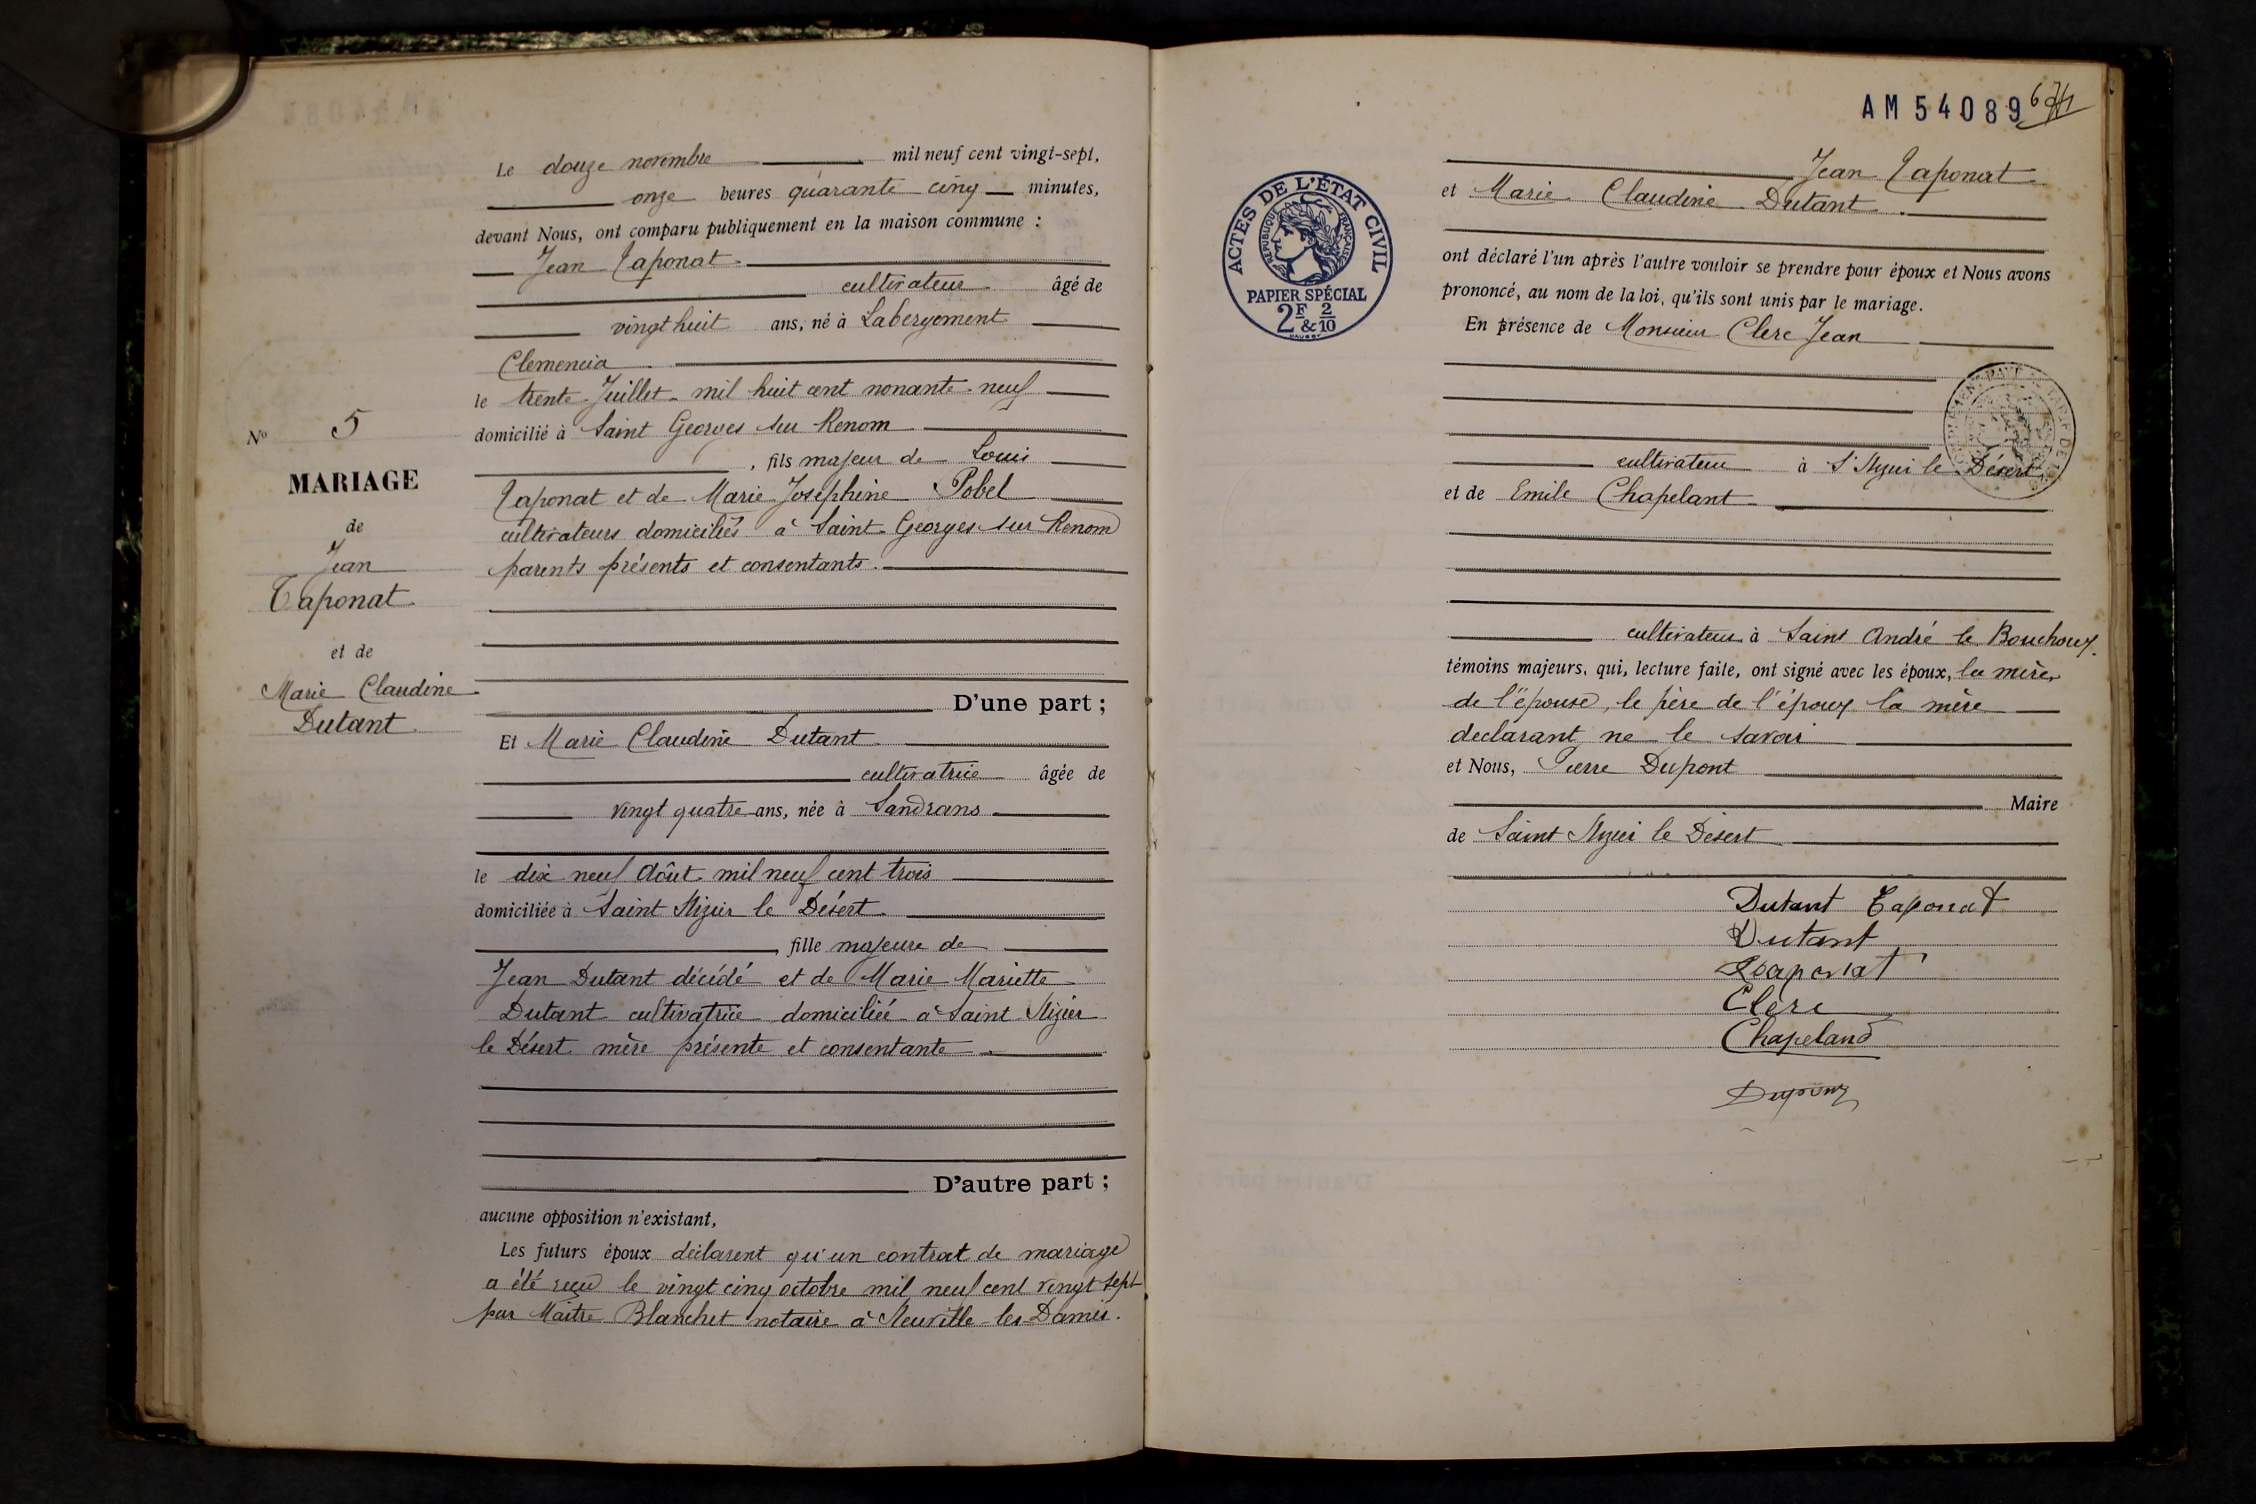 Le douze novembre mil neuf cent vingt-sept,
onze heures quarante cinq minutes,
devant Nous, ont comparu publiquement en la maison commune :
Jean Taponat
cultivateur âgé de
vingt huit ans, né à Labergement
Clemencia
le trente Juillet mil huit cent nonante neuf
domicilié à Saint Georges sur Renom
, fils majeur de Louis
Taponat et de Marie Joséphine Pobel
cultivateurs domiciliés à Saint Georges sur Renom
parents présents et consentants.
D'une part ;
Et Marie Claudine Dutant
cultivatrice âgée de
vingt quatre ans, née à Sandrans
le dix neuf Août mil neuf cent trois
domiciliée à Saint Nizier le Désert
, fille majeure de
Jean Dutant décédé et de Marie Mariette
Dutant cultivatrice domiciliée à Saint Nizier
le Désert mère présente et consentante.
D'autre part ;
aucune opposition n'existant,
Les futurs époux déclarent qu'un contrat de mariage
a été reçu le vingt cinq octobre mil neuf cent vingt sept
par Maître Blanchet notaire à Neuville-les-Dames.
No 5
MARIAGE
de
Jean
Taponat
et de
Marie Claudine
Dutant
AM 54089
ACTES DE L'ÉTAT CIVIL
RÉPUBLIQUE FRANÇAISE
PAPIER SPÉCIAL
2F & 2/10
Jean Taponat
et Marie Claudine Dutant.
ont déclaré l'un après l'autre vouloir se prendre pour époux et Nous avons
prononcé, au nom de la loi, qu'ils sont unis par le mariage.
En présence de Monsieur Clerc Jean
cultivateur à St Nizier le Désert
et de Emile Chapelant
cultivateur à Saint André le Bouchoux.
témoins majeurs, qui, lecture faite, ont signé avec les époux, la mère
de l'épouse, le père de l'époux la mère
declarant ne le savoir
et Nous, Pierre Dupont
Maire
de Saint Nizier le Désert
Dutant Taponat
Dutant
Taponat
Clerc
Chapeland
Dupont